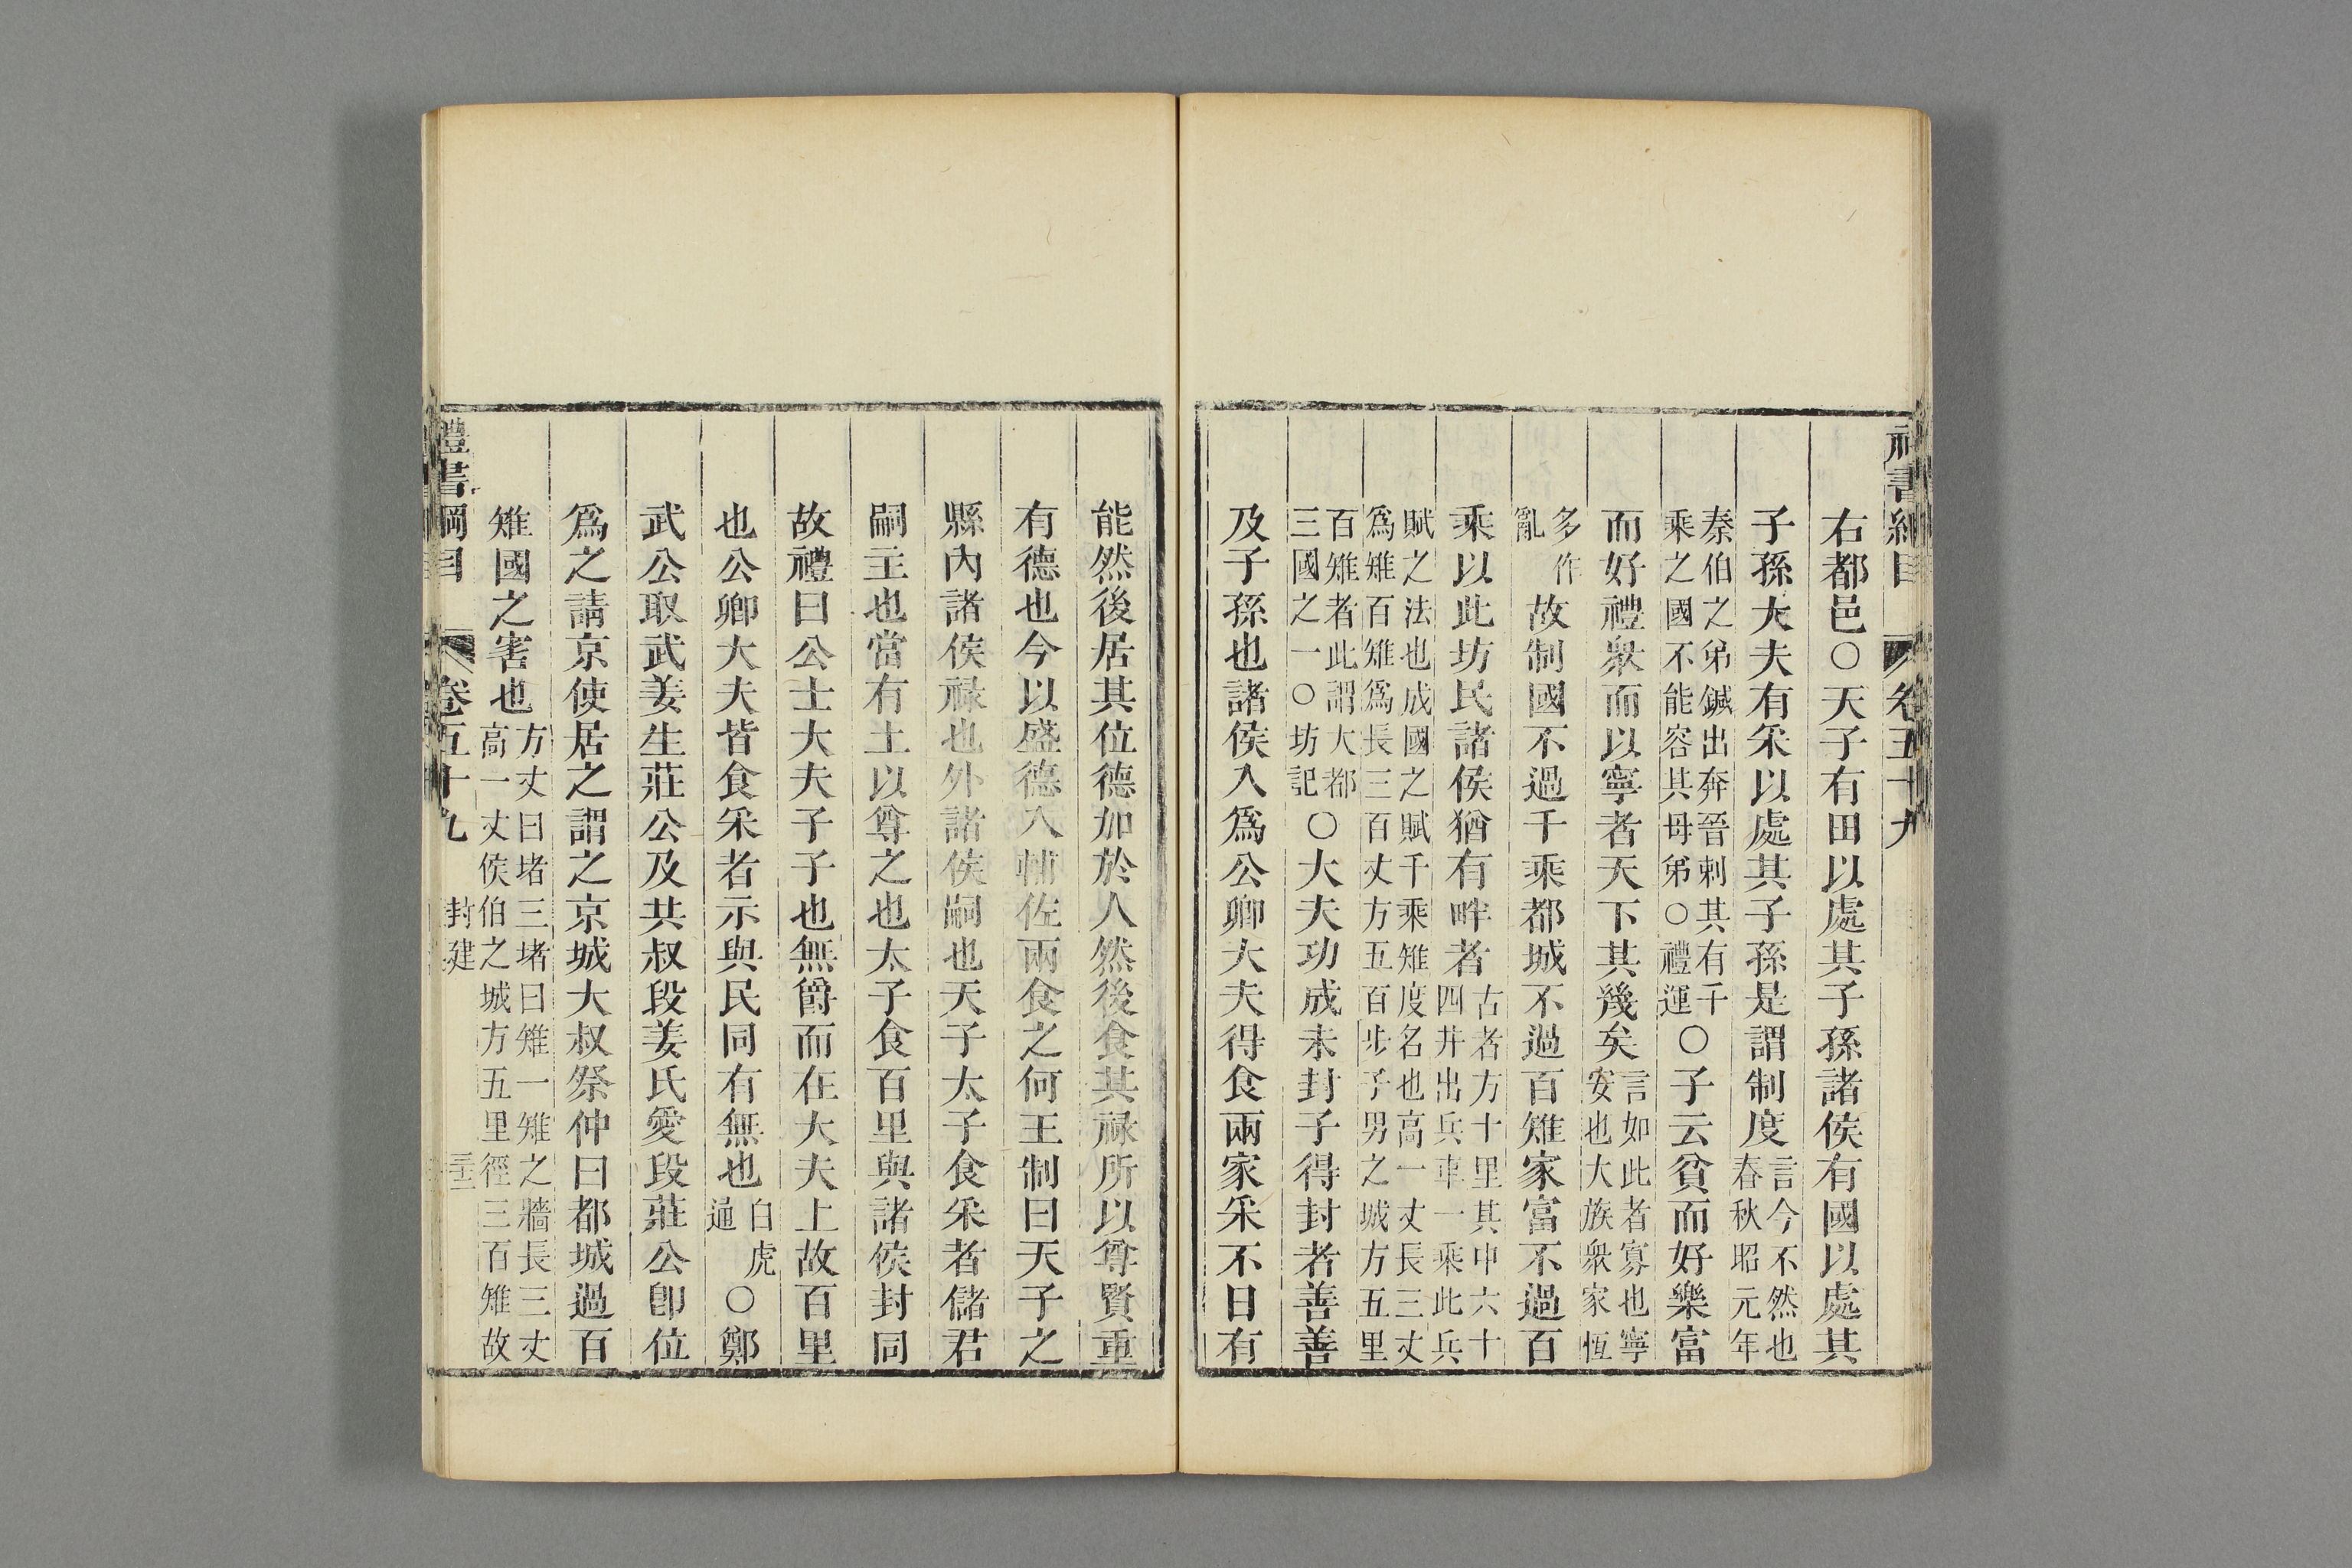 禮書綱目 卷五十九
右都邑○天子有田以處其子孫諸侯有國以處其
子孫大夫有采以處其子孫是謂制度言今不然也春秋昭元年
秦伯之弟鍼出奔晉刺其有千乘之國不能容其母弟○禮運○子云貧而好樂富
而好禮衆而以寧者天下其幾矣言如此者寡也寧安也大族衆家恆
多作亂故制國不過千乘都城不過百雉家富不過百
乘以此坊民諸侯猶有畔者古者方十里其中六十四井出兵車一乘此兵
賦之法也成國之賦千乘雉度名也高一丈長三丈爲雉百雉爲長三百丈方五百步子男之城方五里
百雉者此謂大都三國之一○坊記○大夫功成未封子得封者善善
及子孫也諸侯入爲公卿大夫得食兩家采不曰有
能然後居其位德加於人然後食其祿所以尊賢重
有德也今以盛德入輔佐兩食之何王制曰天子之
縣內諸侯祿也外諸侯嗣也天子太子食采者儲君
嗣主也當有土以尊之也太子食百里與諸侯封同
故禮曰公士大夫子子也無爵而在大夫上故百里
也公卿大夫皆食采者示與民同有無也白虎通○鄭
武公取武姜生莊公及共叔段姜氏愛段莊公卽位
爲之請京使居之謂之京城大叔祭仲曰都城過百
雉國之害也方丈曰堵三堵曰雉一雉之牆長三丈高一丈侯伯之城方五里徑三百雉故
禮書綱目 卷五十九 封建 三十一